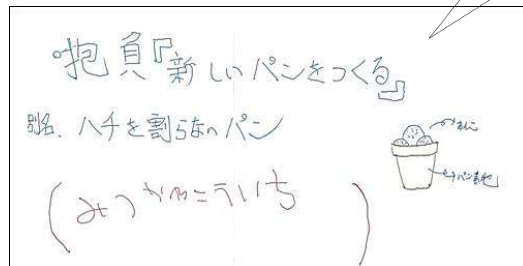 。抱負『新しいパンをつくる』
別名. ハチを割らないパン
あんこ
パン生地
(みつかわこういち)